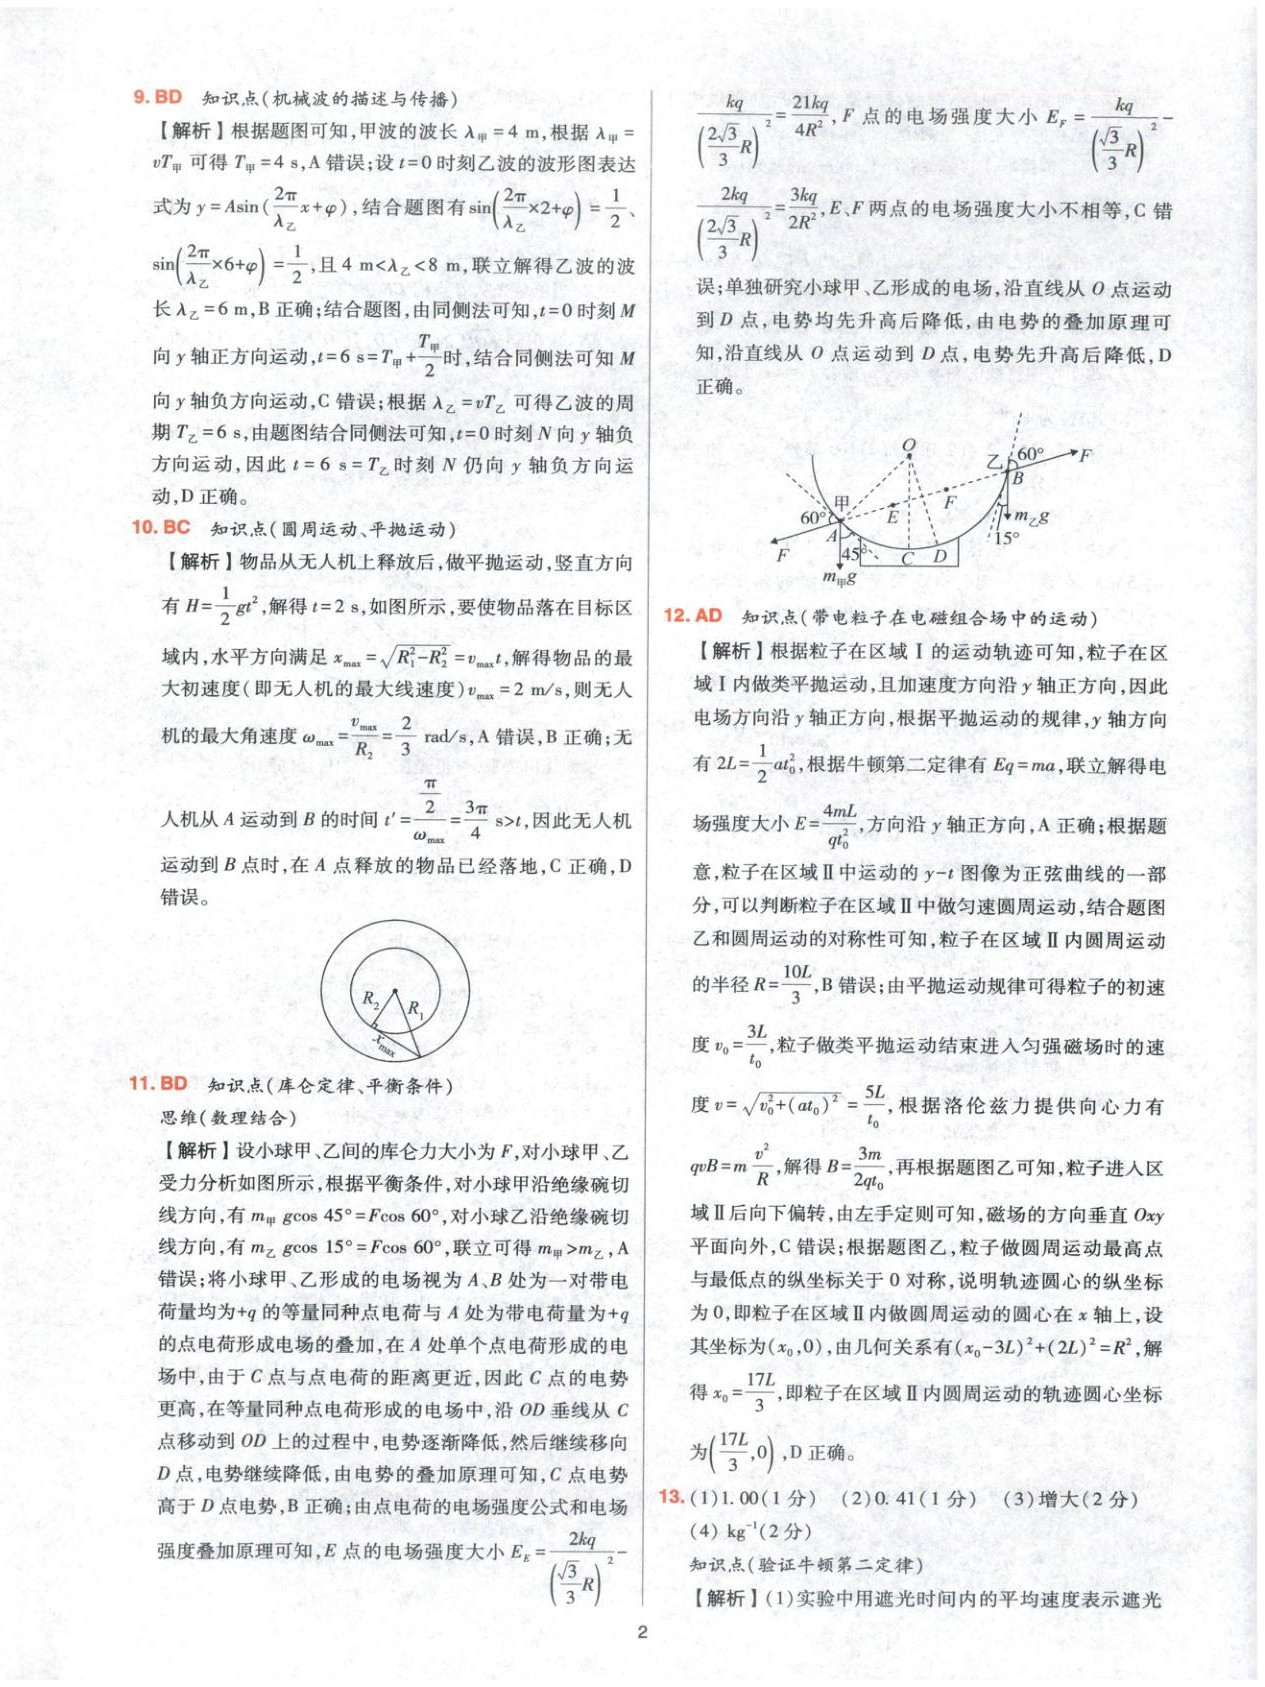 9. BD 知识点(机械波的描述与传播)
【解析】根据题图可知,甲波的波长 λ甲 = 4 m,根据 λ甲 =
vT甲 可得 T甲 = 4 s,A 错误;设 t = 0 时刻乙波的波形图表达
式为 y = Asin(2π/λ乙 x+φ),结合题图有 sin(2π/λ乙 ×2+φ) = 1/2、
sin(2π/λ乙 ×6+φ) = 1/2,且 4 m<λ乙<8 m,联立解得乙波的波
长 λ乙 = 6 m,B 正确;结合题图,由同侧法可知,t = 0 时刻 M
向 y 轴正方向运动,t = 6 s = T甲 + T甲/2 时,结合同侧法可知 M
向 y 轴负方向运动,C 错误;根据 λ乙 = vT乙 可得乙波的周
期 T乙 = 6 s,由题图结合同侧法可知,t = 0 时刻 N 向 y 轴负
方向运动,因此 t = 6 s = T乙 时刻 N 仍向 y 轴负方向运
动,D 正确。
10. BC 知识点(圆周运动、平抛运动)
【解析】物品从无人机上释放后,做平抛运动,竖直方向
有 H = 1/2 gt²,解得 t = 2 s,如图所示,要使物品落在目标区
域内,水平方向满足 xmax = √(R₁²−R₂²) = vmax t,解得物品的最
大初速度(即无人机的最大线速度)vmax = 2 m/s,则无人
机的最大角速度 ωmax = vmax/R₂ = 2/3 rad/s,A 错误,B 正确;无
人机从 A 运动到 B 的时间 t′ = (π/2)/ωmax = 3π/4 s>t,因此无人机
运动到 B 点时,在 A 点释放的物品已经落地,C 正确,D
错误。
R₂ R₁
xmax
11. BD 知识点(库仑定律、平衡条件)
思维(数理结合)
【解析】设小球甲、乙间的库仑力大小为 F,对小球甲、乙
受力分析如图所示,根据平衡条件,对小球甲沿绝缘碗切
线方向,有 m甲 gcos 45° = Fcos 60°,对小球乙沿绝缘碗切
线方向,有 m乙 gcos 15° = Fcos 60°,联立可得 m甲>m乙,A
错误;将小球甲、乙形成的电场视为 A、B 处为一对带电
荷量均为+q 的等量同种点电荷与 A 处为带电荷量为+q
的点电荷形成电场的叠加,在 A 处单个点电荷形成的电
场中,由于 C 点与点电荷的距离更近,因此 C 点的电势
更高,在等量同种点电荷形成的电场中,沿 OD 垂线从 C
点移动到 OD 上的过程中,电势逐渐降低,然后继续移向
D 点,电势继续降低,由电势的叠加原理可知,C 点电势
高于 D 点电势,B 正确;由点电荷的电场强度公式和电场
强度叠加原理可知,E 点的电场强度大小 E_E = 2kq/(√3/3 R)² −
kq/(2√3/3 R)² = 21kq/4R²,F 点的电场强度大小 E_F = kq/(√3/3 R)² −
2kq/(2√3/3 R)² = 3kq/2R²,E、F 两点的电场强度大小不相等,C 错
误;单独研究小球甲、乙形成的电场,沿直线从 O 点运动
到 D 点,电势均先升高后降低,由电势的叠加原理可
知,沿直线从 O 点运动到 D 点,电势先升高后降低,D
正确。
O 乙 60° F
B
甲 F
60° E m乙g
A 15°
F 45° C D
m甲g
12. AD 知识点(带电粒子在电磁组合场中的运动)
【解析】根据粒子在区域 Ⅰ 的运动轨迹可知,粒子在区
域 Ⅰ 内做类平抛运动,且加速度方向沿 y 轴正方向,因此
电场方向沿 y 轴正方向,根据平抛运动的规律,y 轴方向
有 2L = 1/2 at₀²,根据牛顿第二定律有 Eq = ma,联立解得电
场强度大小 E = 4mL/qt₀²,方向沿 y 轴正方向,A 正确;根据题
意,粒子在区域 Ⅱ 中运动的 y−t 图像为正弦曲线的一部
分,可以判断粒子在区域 Ⅱ 中做匀速圆周运动,结合题图
乙和圆周运动的对称性可知,粒子在区域 Ⅱ 内圆周运动
的半径 R = 10L/3,B 错误;由平抛运动规律可得粒子的初速
度 v₀ = 3L/t₀,粒子做类平抛运动结束进入匀强磁场时的速
度 v = √(v₀²+(at₀)²) = 5L/t₀,根据洛伦兹力提供向心力有
qvB = m v²/R,解得 B = 3m/2qt₀,再根据题图乙可知,粒子进入区
域 Ⅱ 后向下偏转,由左手定则可知,磁场的方向垂直 Oxy
平面向外,C 错误;根据题图乙,粒子做圆周运动最高点
与最低点的纵坐标关于 0 对称,说明轨迹圆心的纵坐标
为 0,即粒子在区域 Ⅱ 内做圆周运动的圆心在 x 轴上,设
其坐标为(x₀,0),由几何关系有(x₀−3L)²+(2L)² = R²,解
得 x₀ = 17L/3,即粒子在区域 Ⅱ 内圆周运动的轨迹圆心坐标
为(17L/3,0),D 正确。
13. (1)1.00(1 分) (2)0.41(1 分) (3)增大(2 分)
(4) kg⁻¹(2 分)
知识点(验证牛顿第二定律)
【解析】(1)实验中用遮光时间内的平均速度表示遮光
2